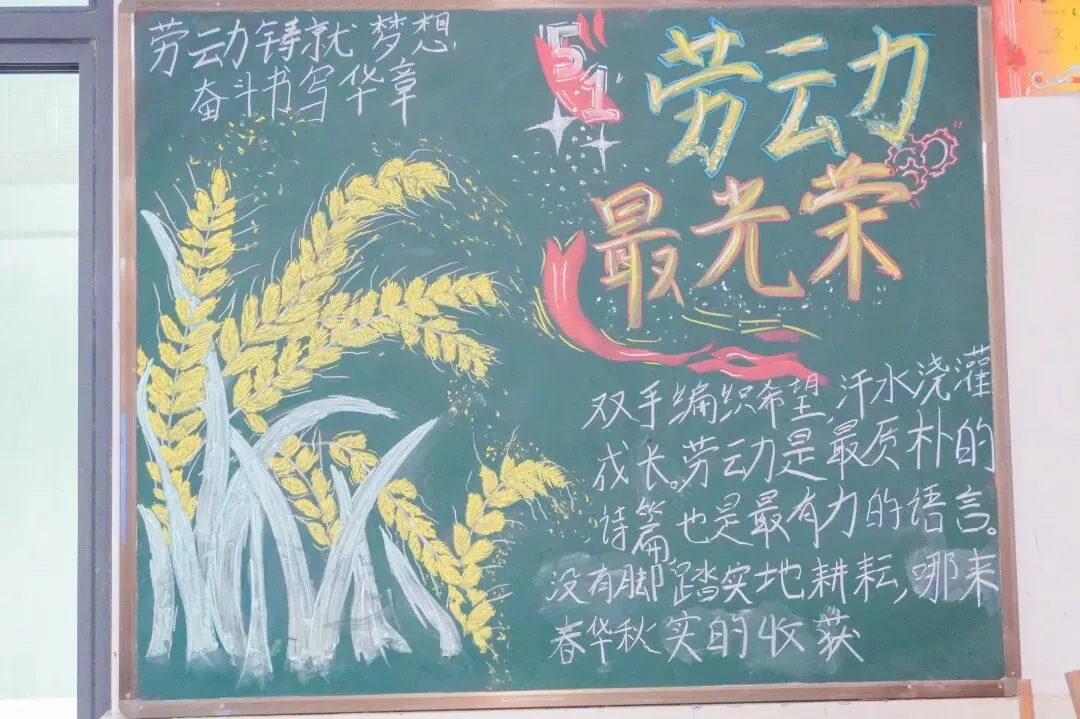 劳动铸就梦想
奋斗书写华章
51
劳动
最光荣
双手编织希望,汗水浇灌
成长。劳动是最质朴的
诗篇,也是最有力的语言。
没有脚踏实地耕耘,哪来
春华秋实的收获